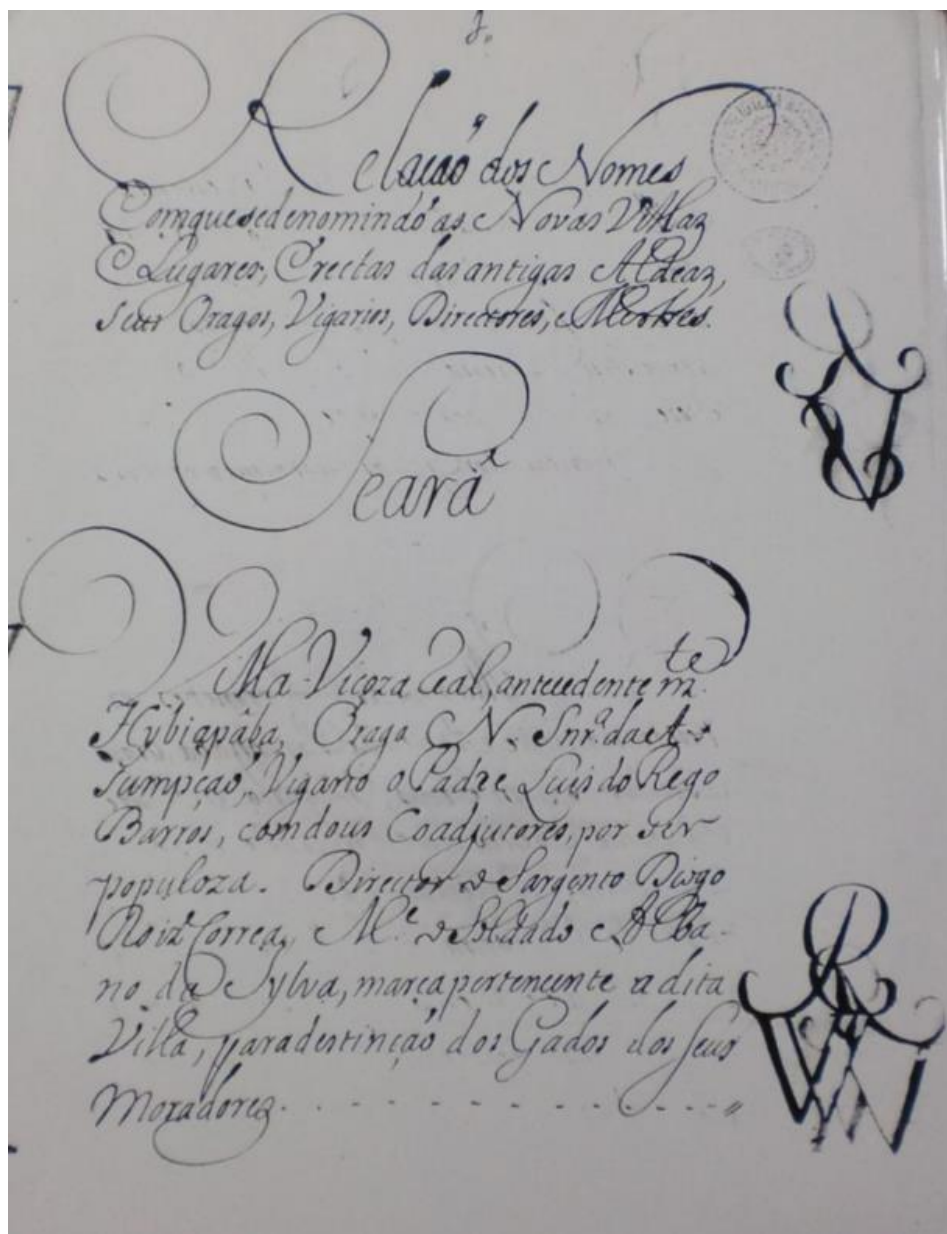 Relação dos Nomes
Comquesedenominão as Novas Villaz
E Lugares, Erectas das antigas Aldeaz,
seus Oragos, Vigarios, Directores, e Mestres.
Seará
Villa Viçoza Real, antecedente m.te
Hybiapába, Orago N. Snr.ª da As
sumpção, Vigario o Padre Luis do Rego
Barros, com dous Coadjutores, por ser
populoza. Director o Sargento Diogo
Roiz Correa, e M.e o Soldado Alba-
no da Sylva, marca pertencente a dita
Villa, para destinção dos Gados dos seus
Moradorez